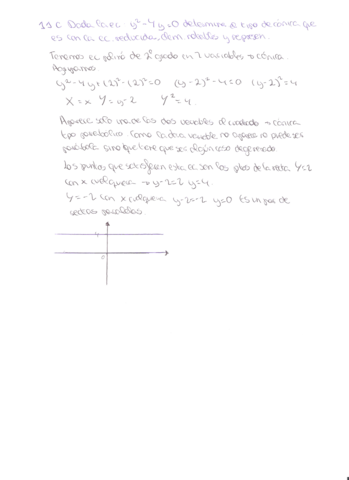 11.C Dada la ec y²-4y=0 determine el tipo de cónica que
es con la ec reducida, elem notables y represen.
Tenemos ec polinó de 2º grado en 2 variables → cónica
Agrupamos
y²-4y+(2)²-(2)²=0 (y-2)²-4=0 (y-2)²=4
X=x Y=y-2 Y²=4.
Aparece solo una de las dos variables al cuadrado → cónica
tipo parabólico. Como la otra variable no aparece no puede ser
parábola sino que tiene que ser algún caso degenerado.
Los puntos que satisfacen esta ec son los ptos de la recta Y=2
con x cualquiera → y-2=2 y=4.
Y=-2 con x cualquiera y-2=-2 y=0 Es un par de
rectas paralelas.
4
0